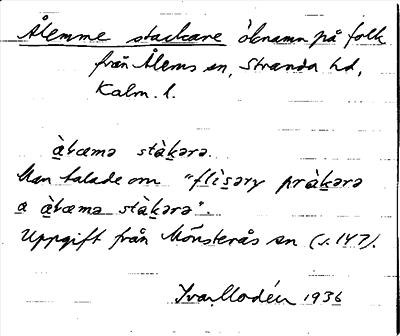 Ålemme stackare öknamn på folk
från Ålems sn, Stranda hd,
Kalm. l.
àlæmə stàkərə.
Man talade om "flìsəry pràkərə
a àlæmə stàkərə".
Uppgift från Mönsterås sn (s. 147).
Ivar Modéer 1936